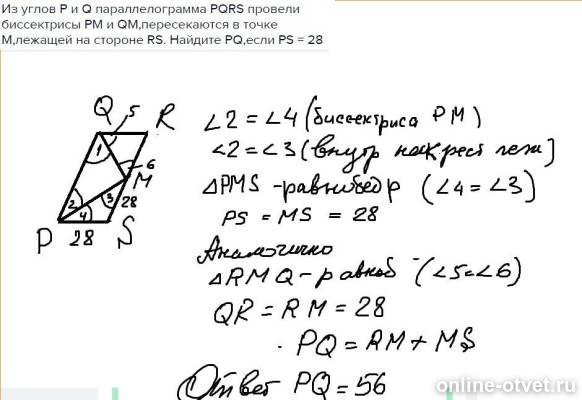 Из углов P и Q параллелограмма PQRS провели
биссектрисы PM и QM,пересекаются в точке
M,лежащей на стороне RS. Найдите PQ,если PS = 28
Q 5 R
1
6
M
2 3 28
4
P 28 S
∠2 = ∠4 (биссектриса PM)
∠2 = ∠3 (внутр накрест леж)
△PMS - равнобедр (∠4 = ∠3)
PS = MS = 28
Аналогично
△RMQ - равноб (∠5 = ∠6)
QR = RM = 28
PQ = RM + MS
Ответ PQ = 56
online-otvet.ru